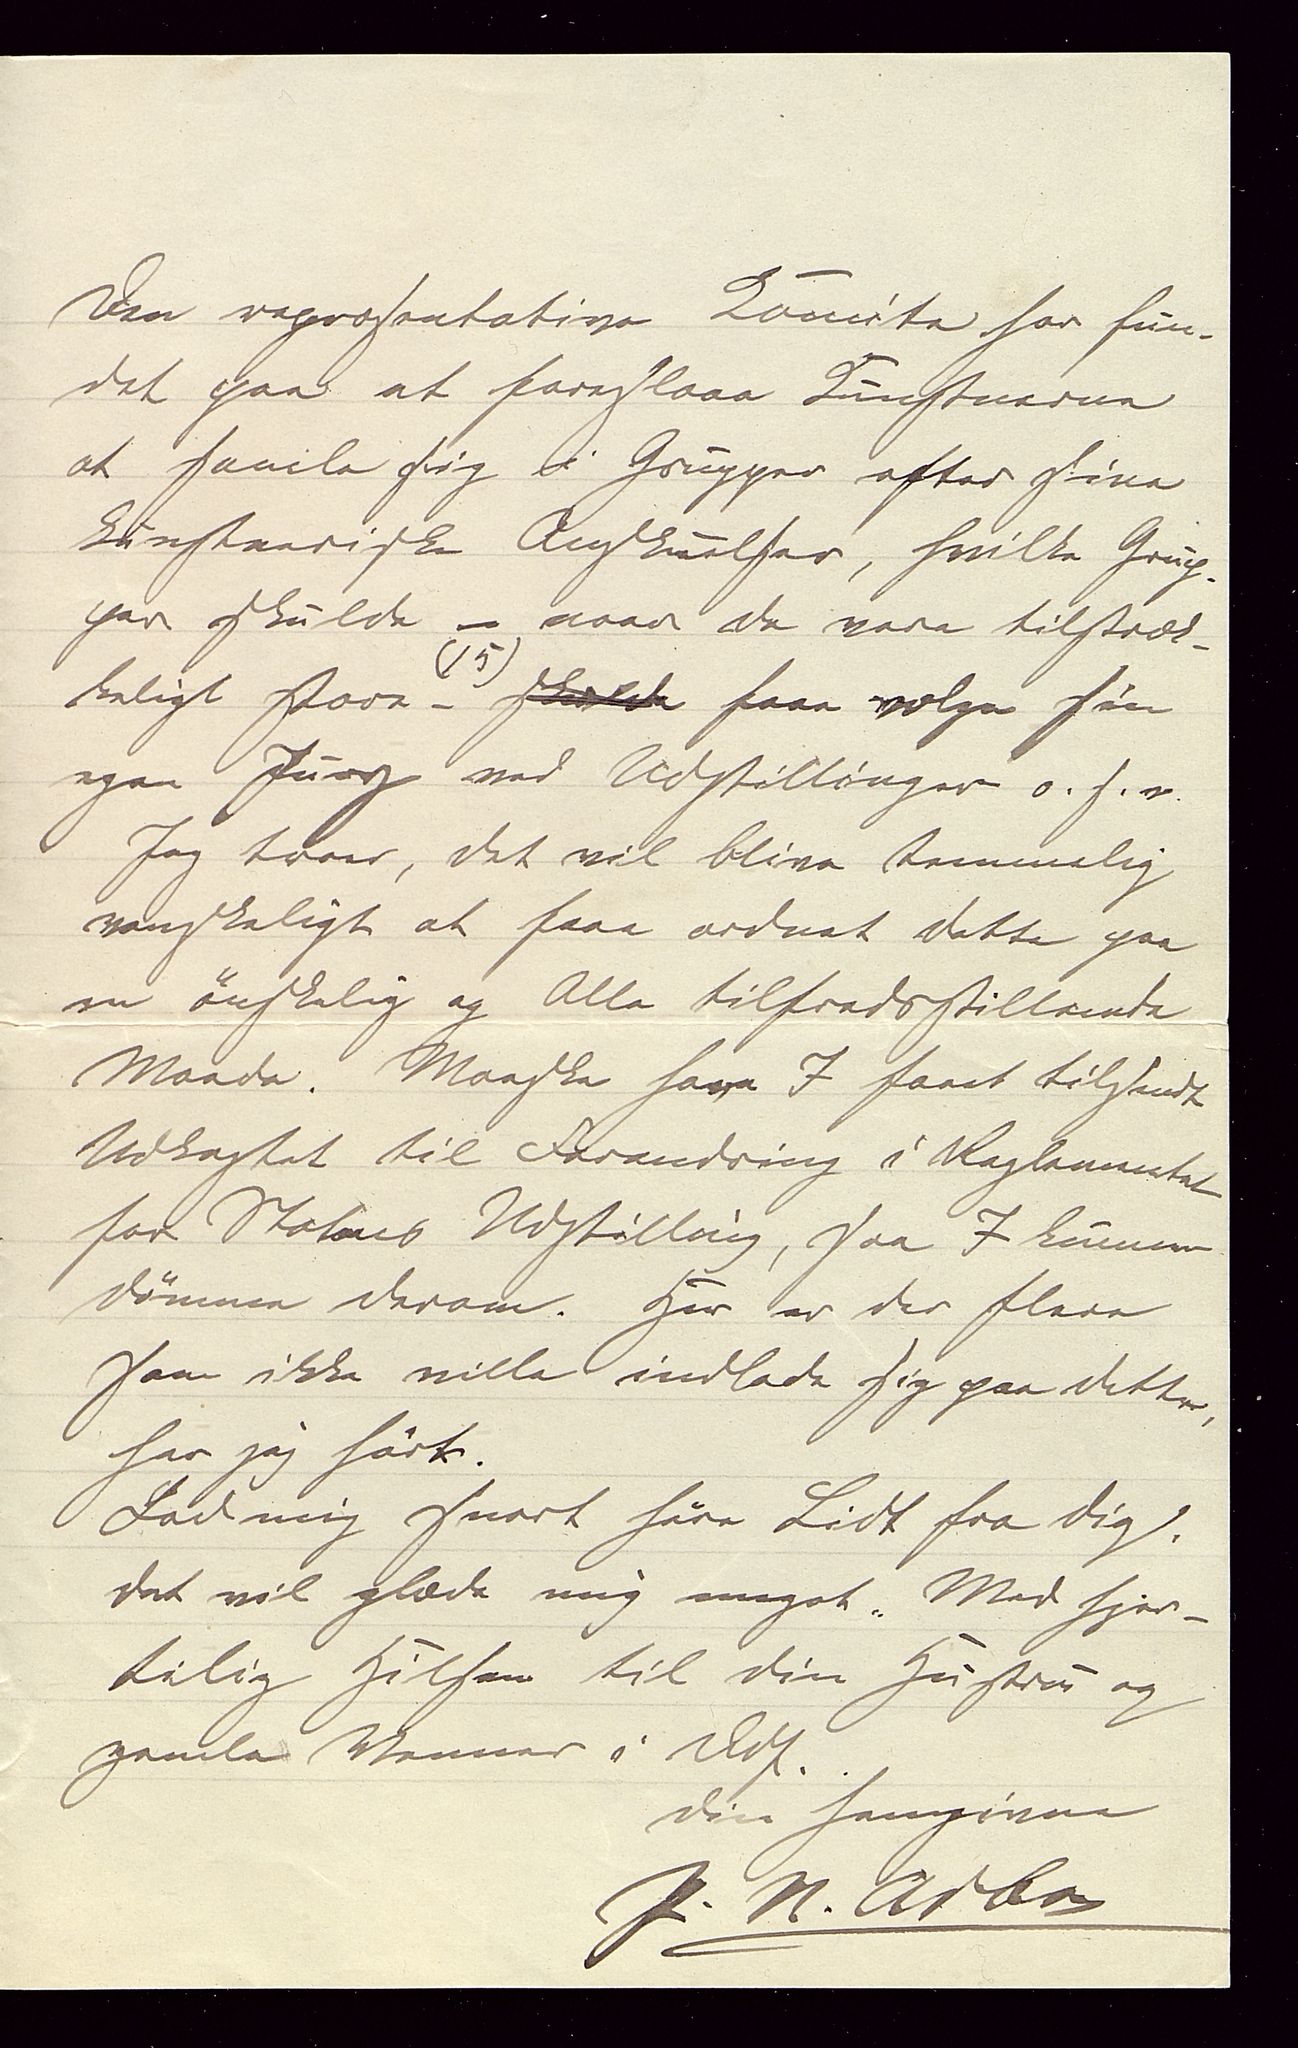 Den repræsentative Komite har fun-
det paa at foreslaaa Kunstnerne
at samle sig i Grupper efter sine
kunstneriske Anskuelser, hvilke Grup-
per skulde – naar de vare tilstræk-
keligt store (15) – skulde faae vælge sin
egen Jury ved Udstillinger o. s. v.
Jeg troer, det vil blive temmelig
vanskeligt at faae ordnet dette paa
en önskelig og Alle tilfredsstillende
Maade. Maaske have I faaet tilsendt
Udkastet til Forandring i Reglementet
for Statens Udstilling, saa I kunne
dömme derom. Her er der flere
som ikke ville indlade sig paa dette,
har jeg hört.
Lad mig snart höre Lidt fra Dig!
det vil glæde mig meget. Med hjer-
telig Hilsen til din Hustru og
gamle Venner i Ddf.
din hengivne
N. Arbo